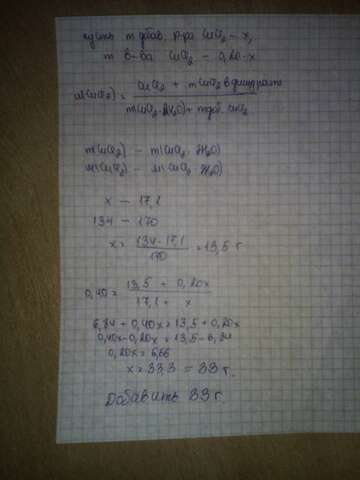 пусть m добав. р-ра CuCl₂ - x,
m в-ва CuCl₂ - 0,20·x
ω(CuCl₂) = CuCl₂ + m CuCl₂ в дигидрате
m(CuCl₂·2H₂O) + m доб. CuCl₂
m(CuCl₂) - m(CuCl₂·2H₂O)
M(CuCl₂) - M(CuCl₂·2H₂O)
x - 17,1
134 - 170
x = 134·17,1 / 170 = 13,5 г
0,40 = 13,5 + 0,20x / 17,1 + x
6,84 + 0,40x = 13,5 + 0,20x
0,40x - 0,20x = 13,5 - 6,84
0,20x = 6,66
x = 33,3 = 33 г.
Добавить 33 г.